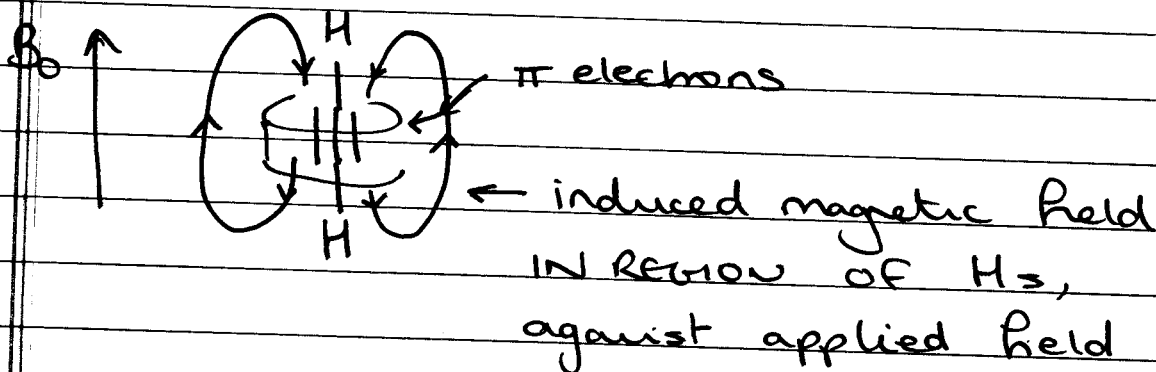 H
B₀
π electrons
← induced magnetic field
IN REGION OF Hs,
H
against applied field